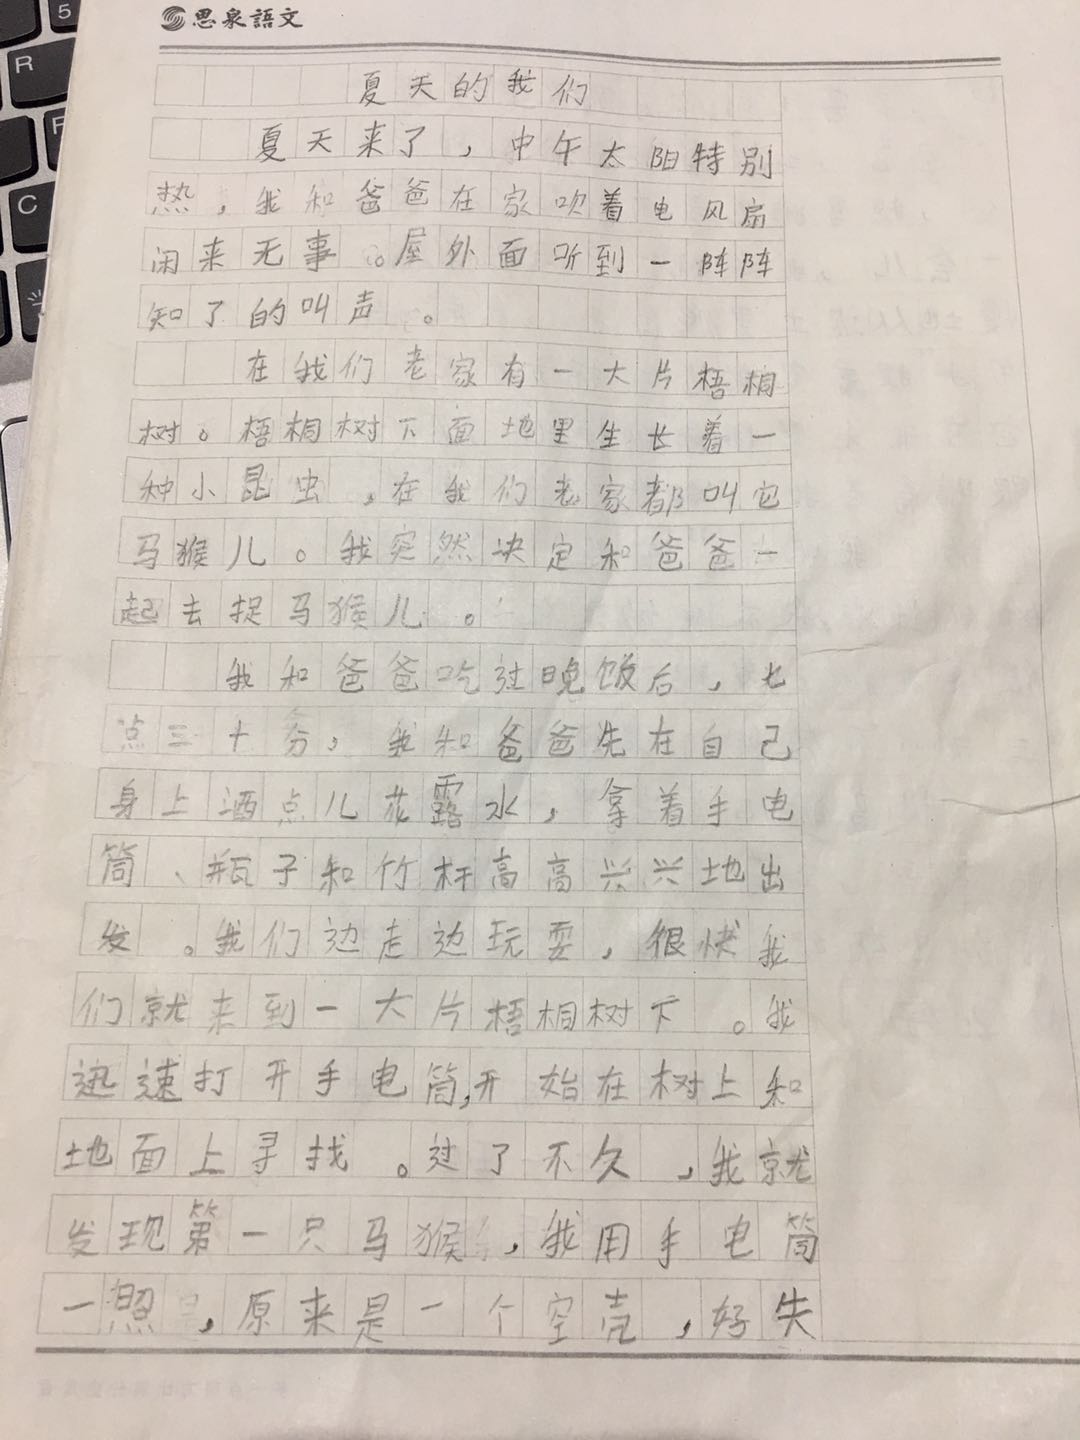 思泉語文
夏天的我们
夏天来了，中午太阳特别
热，我和爸爸在家吹着电风扇
闲来无事。屋外面听到一阵阵
知了的叫声。
在我们老家有一大片梧桐
树。梧桐树下面地里生长着一
种小昆虫，在我们老家都叫它
马猴儿。我突然决定和爸爸一
起去捉马猴儿。
我和爸爸吃过晚饭后，七
点三十分，我和爸爸先在自己
身上洒点儿花露水，拿着手电
筒、瓶子和竹杆高高兴兴地出
发。我们边走边玩耍，很快我
们就来到一大片梧桐树下。我
迅速打开手电筒，开始在树上和
地面上寻找。过了不久，我就
发现第一只马猴，我用手电筒
一照，原来是一个空壳，好失
5
R
F
C